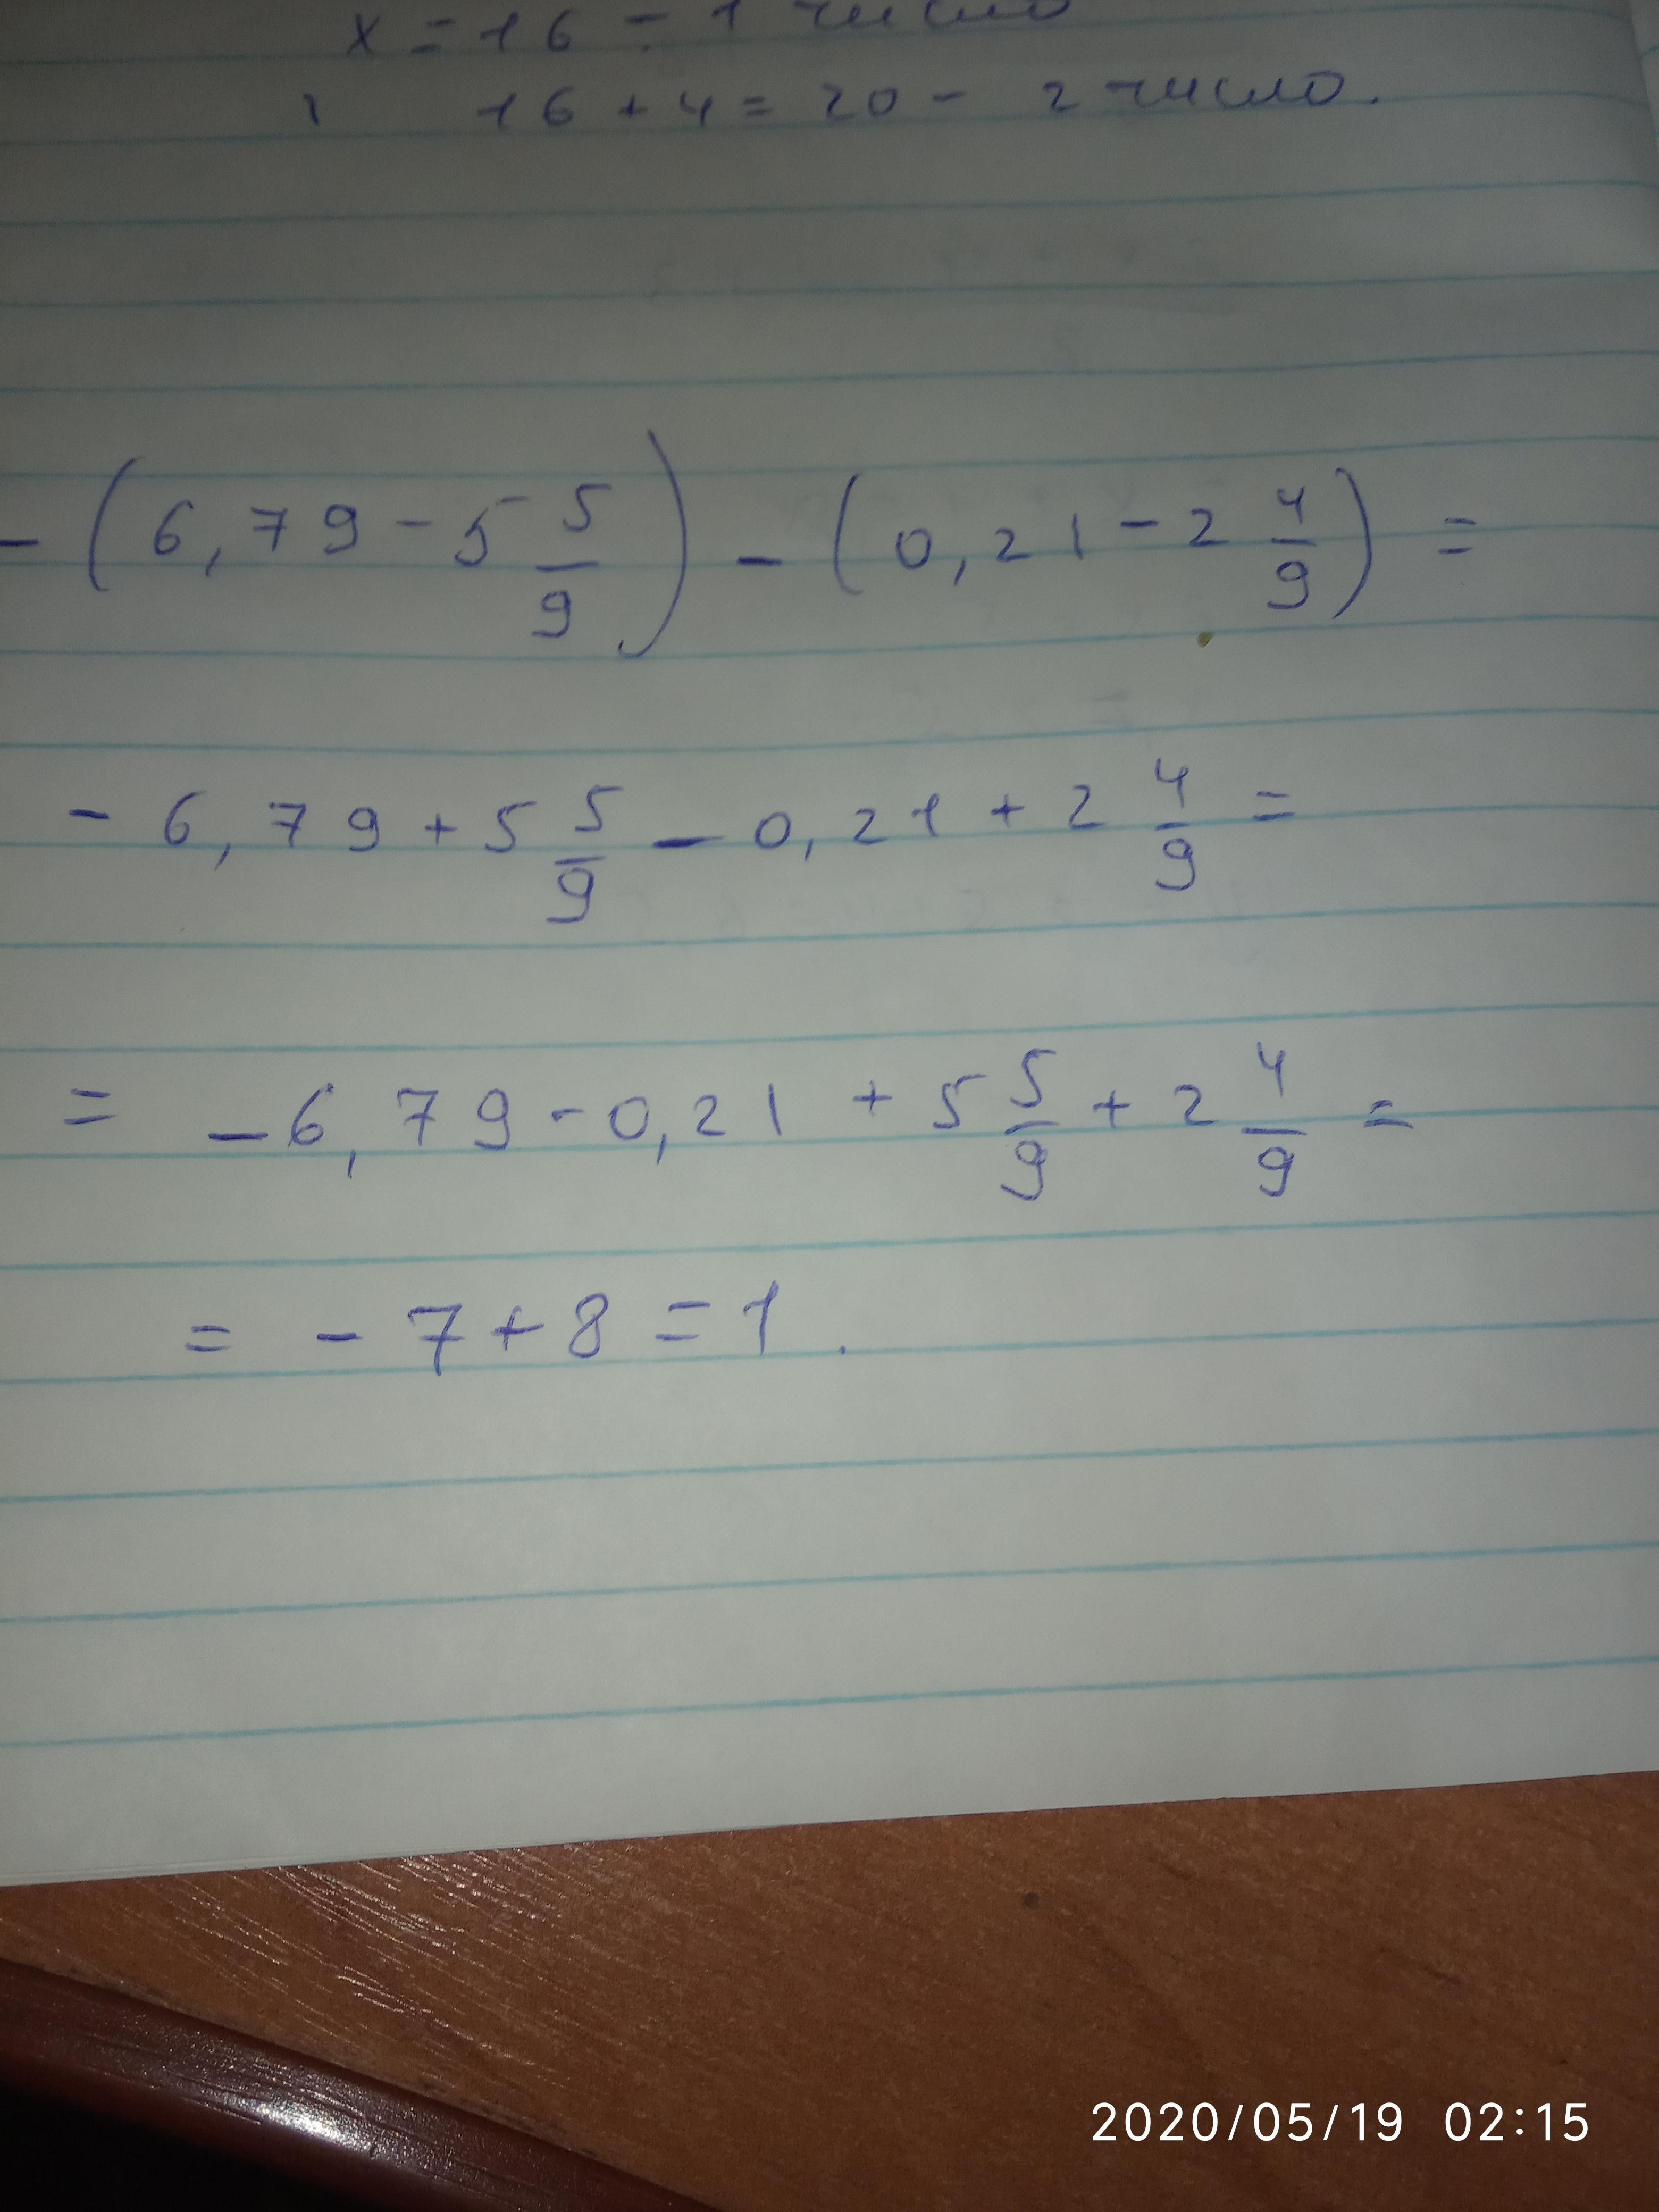 x = 16 - 1 число
16 + 4 = 20 - 2 число.
- (6,79 - 5 5/9) - (0,21 - 2 4/9) =
- 6,79 + 5 5/9 - 0,21 + 2 4/9 =
= - 6,79 - 0,21 + 5 5/9 + 2 4/9 =
= - 7 + 8 = 1.
2020/05/19 02:15